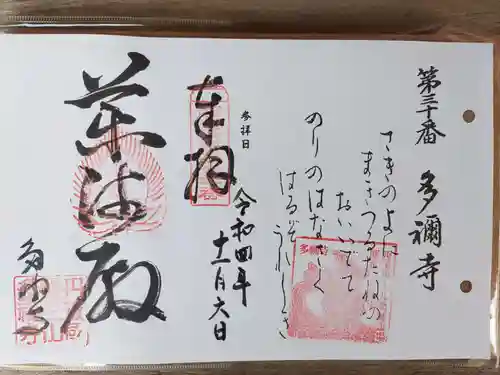 第三十番 多禰寺
さきのよに
まきつるたねの
おいいでて
のりのはなさく
はるぞうれしき
参拝日
奉拝
令和四年
十一月六日
薬師殿
多祢寺